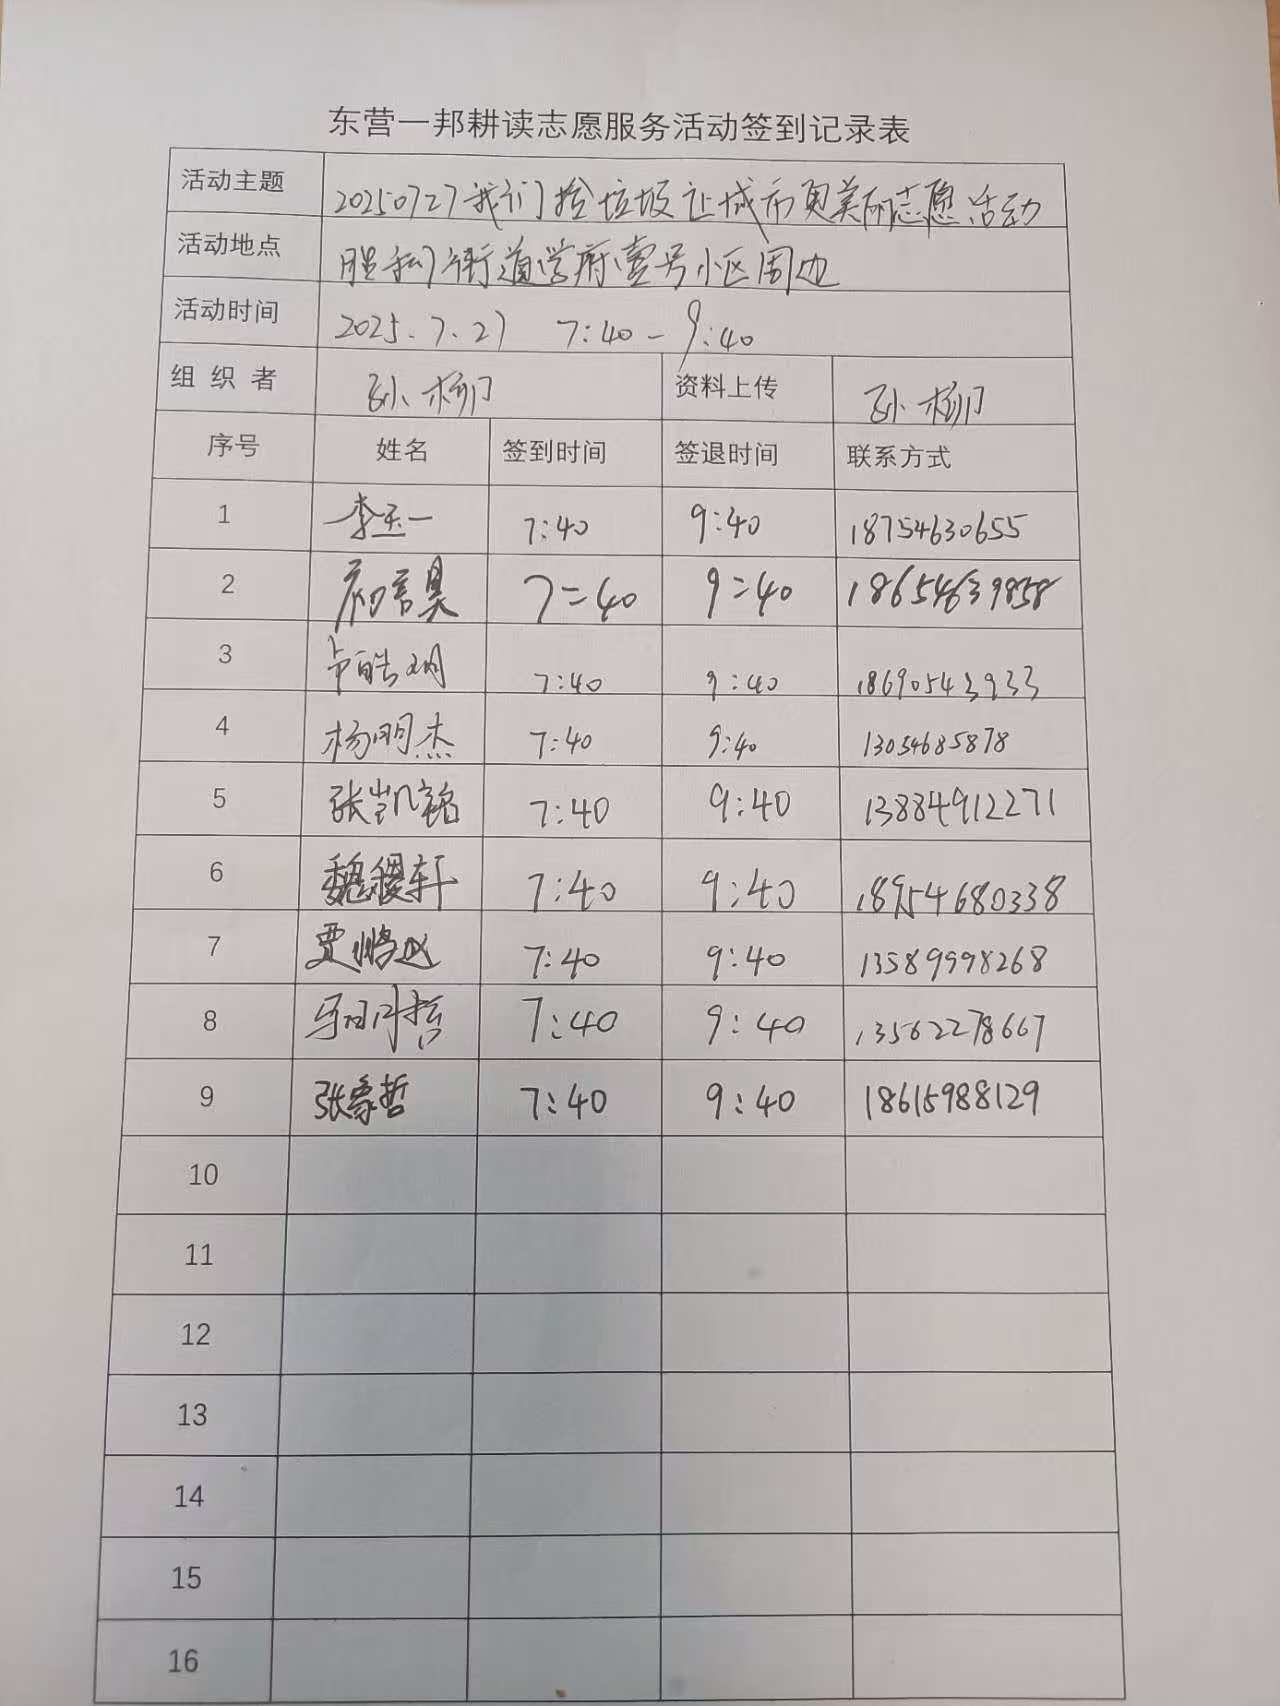 东营一邦耕读志愿服务活动签到记录表
活动主题 20250727我们捡垃圾让城市更美丽志愿活动
活动地点 胜利街道学府壹号小区周边
活动时间 2025.7.27 7:40-9:40
组织者 孙杨 资料上传 孙杨
序号 姓名 签到时间 签退时间 联系方式
1 李玉一 7:40 9:40 18754630655
2 7:40 9:40 18654639858
3 7:40 9:40 18690543933
4 杨明杰 7:40 9:40 13054685878
5 张凯铭 7:40 9:40 13884912271
6 魏稷轩 7:40 9:40 18954680338
7 贾鹏 7:40 9:40 13589998268
8 7:40 9:40 13562278667
9 张豪哲 7:40 9:40 18615988129
10
11
12
13
14
15
16